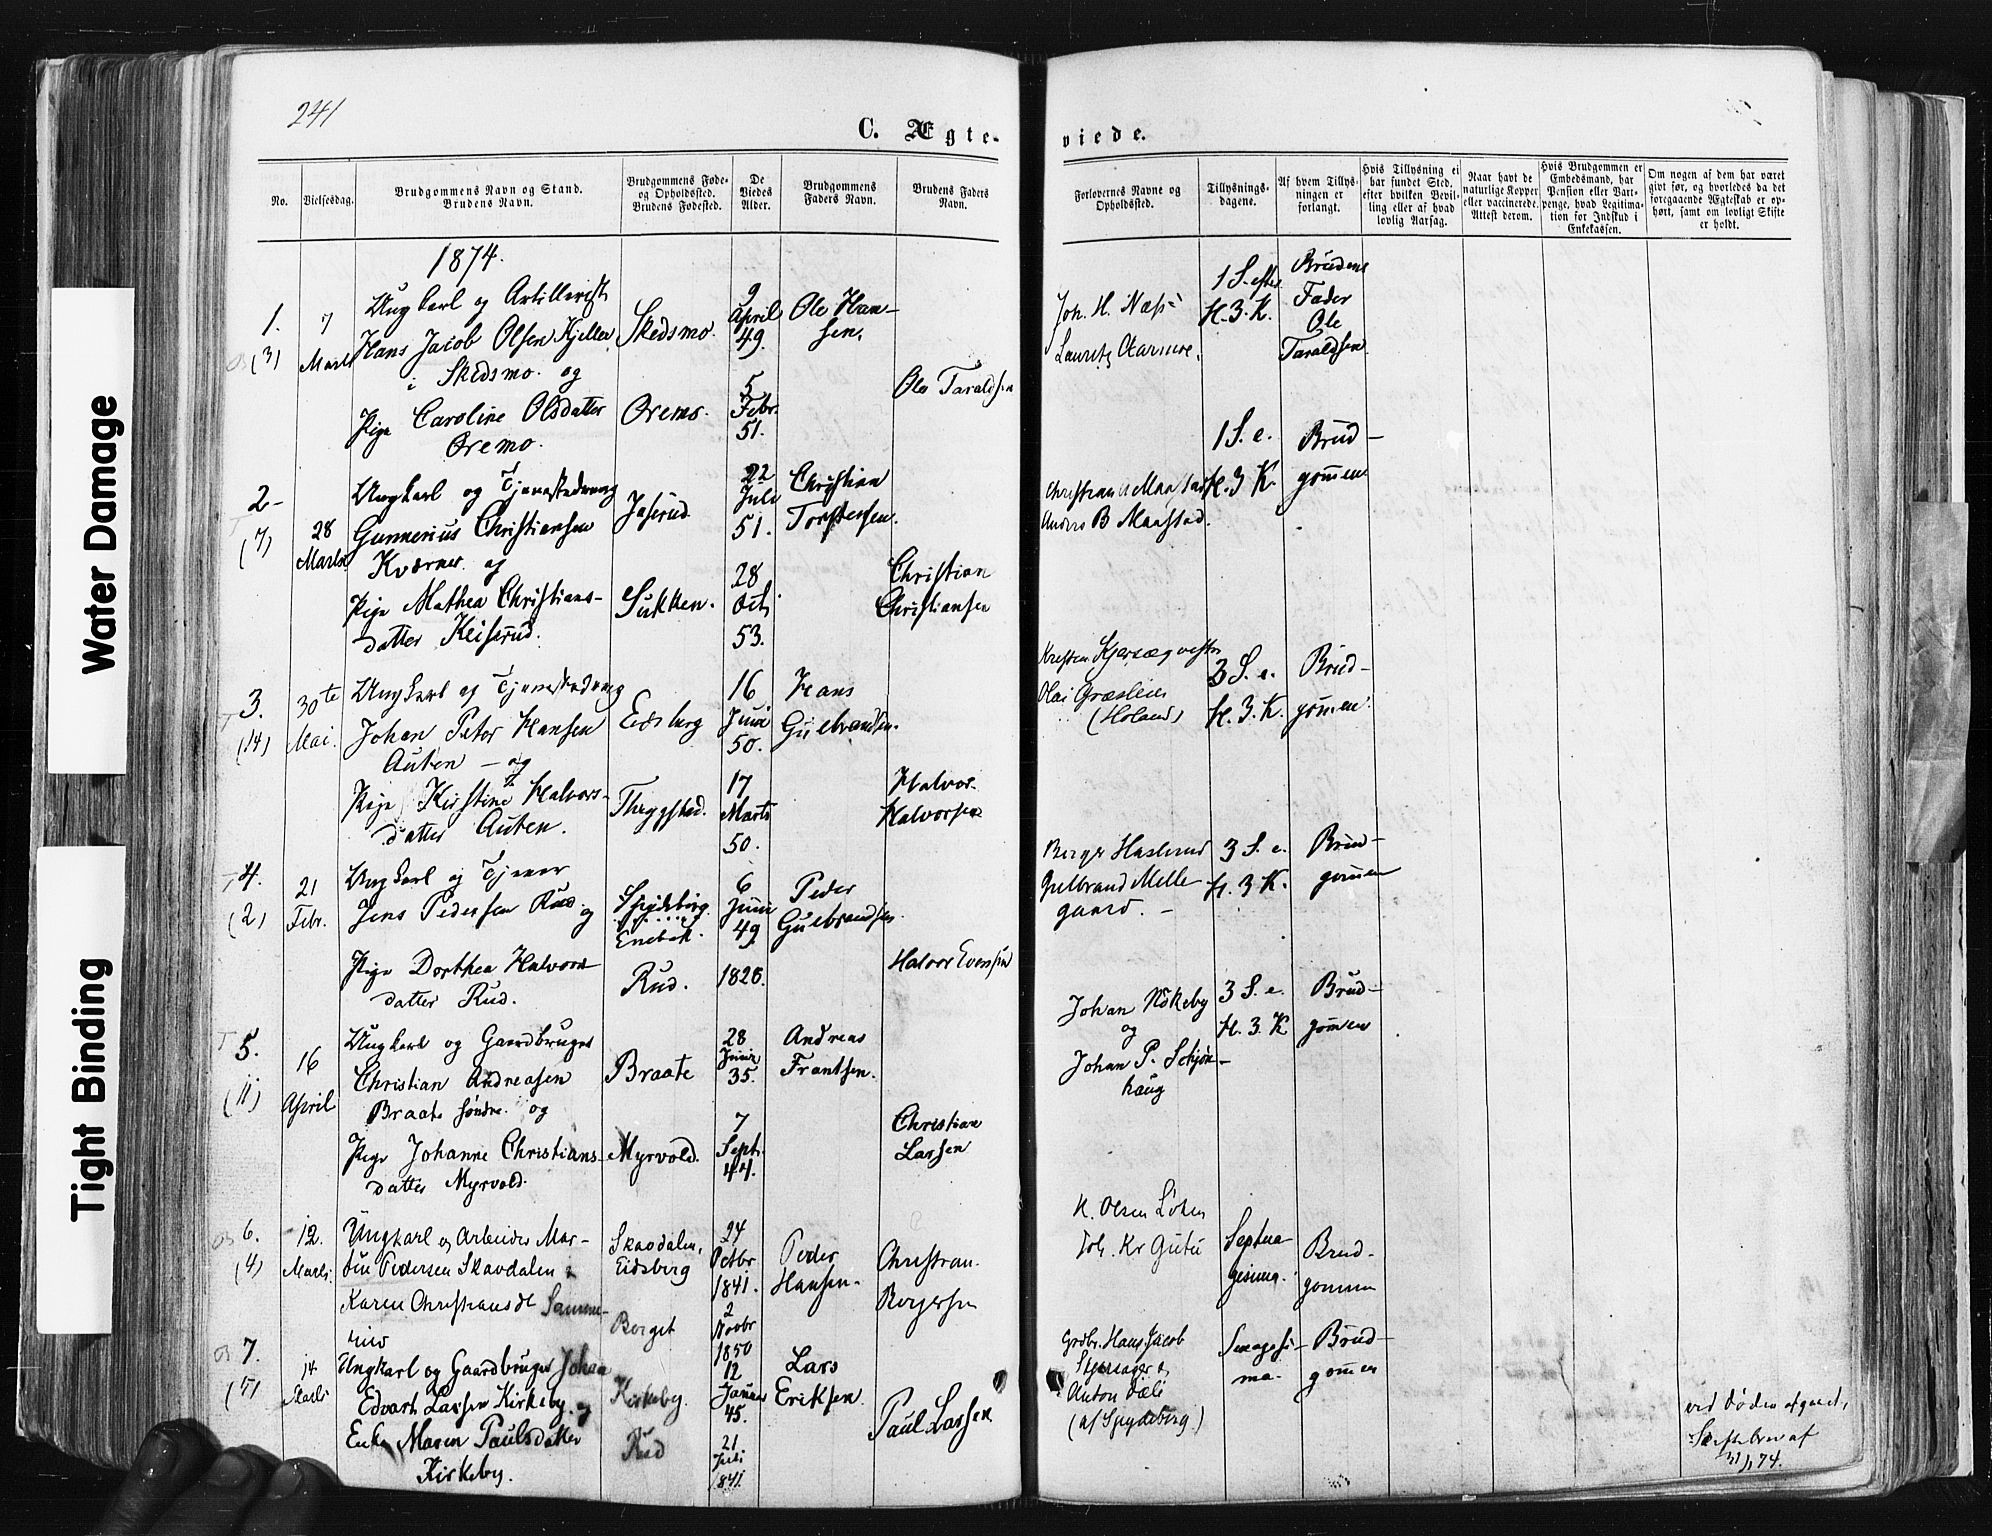 241
C. Ægte-
viede.
No.
Vielsesdag.
Brudgommens Navn og Stand.
Brudens Navn.
Brudgommens Føde-
og Opholdssted.
Brudens Fødested.
De
Viedes
Alder.
Brudgommens
Faders Navn.
Brudens Faders
Navn.
Forlovernes Navne og
Opholdssted.
Tillysnings-
dagene.
Af hvem Tillys-
ningen er
forlangt.
Hvis Tillysning ei
har fundet Sted,
efter hvilken Bevil-
ling eller af hvad
lovlig Aarsag.
Naar havt de
naturlige Kopper
eller vaccinerede.
Attest derom.
Hvis Brudgommen er
Embedsmand, har
Pension eller Var-
penge, hvad Legitima-
tion for Indskud i
Enkekassen.
Om nogen af dem har været
gift før, og hvorledes da det
foregaaende Ægteskab er op-
hørt, samt om lovligt Skifte
er holdt.
1874.
1.
(3)
7
Marts
Ungkarl og Artillerist
Hans Jacob Olsen Kjeller
i Skedsmo. og
Pige Caroline Olsdatter
Øremo.
Skedsmo.
Øremo.
9
April
49.
5
Febr.
51.
Ole Han-
sen.
Ole Taraldsen
Joh. H. Næss
Lauritz Aarmoe.
1 S. efter
H. 3. K.
Brudens
Fader
Ole
Taraldsen
2-
(7)
28
Marts
Ungkarl og Tjenestedreng
Gunnerius Christiansen
Kværner og
Pige Mathea Christians-
datter Keiserud.
Jaserud
Sukken.
22
Juli
51.
28
Oct.
53.
Christian
Torstensen.
Christian
Christiansen
Christian Maastad
Anders B Maastad.
1 S. e.
H. 3 K.
Brud-
gommen
3.
(14)
30te
Mai.
Ungkarl og Tjenestedreng
Johan Peter Hansen
Auten - og
Pige Kirstine Halvors-
datter Auten.
Eidsberg
Thrygstad.
16
Juni
50.
17
Marts
50.
Hans
Gulbrandsen.
Halvor
Halvorsen
Olai Græslien
(Høland)
3 S. e.
H. 3. K.
Brud-
gommen.
4.
(2)
21
Febr.
Ungkarl og Tjener
Jens Pedersen Rud. og
Pige Dorthea Halvors-
datter Rud.
Spydeberg
Enebak.
Rud.
6
Juni
49
1828.
Peder
Gulbrandsen.
Halvor Evensen
Berger Haslerud
Gulbrand Melle-
gaard. -
3 S. e.
H. 3 K.
Brud-
gommen
5.
(11)
16
April
Ungkarl og Gaardbruger
Christian Andreasen
Braate søndre. og
Pige Johanne Christians-
datter Myrvold.
Braate
Myrvold.
28
Juni
35.
7
Sept.
44.
Andreas
Frantsen.
Christian
Larsen
Johan Kökeby
og
Johan P. Schjøn-
haug
3 S. e.
H. 3. K
Brud-
gommen
6.
(4)
12.
Marts.
Ungkarl og Arbeider Mar-
tin Pedersen Skavdalen &
Karen Christians dt
Skavdalen,
Eidsberg
Berget
24
Octbr
1841.
2
Novbr
1850
Peder
Hansen-
Christian
Borgersen
K. Olsen Løken
Joh. Kr Gutu
Septua-
gesima.
Brud-
gommen
7.
(5)
14
Marts
Ungkarl og Gaardbruger Johan
Edvart Larsen Kirkeby. og
Enke Maren Paulsdatter
Kirkeby.
Kirkeby.
Rud
12
Januar
45.
21
Juli
1841.
Lars
Eriksen.
Paul Larsen
Grdbr. Hans Jacob
Anton Dæli
(af Spydeberg)
Sexagesi-
ma-
Brud-
gommen
ved Døden afgaaet,
Skiftebrev af
31/1 74.
Water Damage
Tight Binding